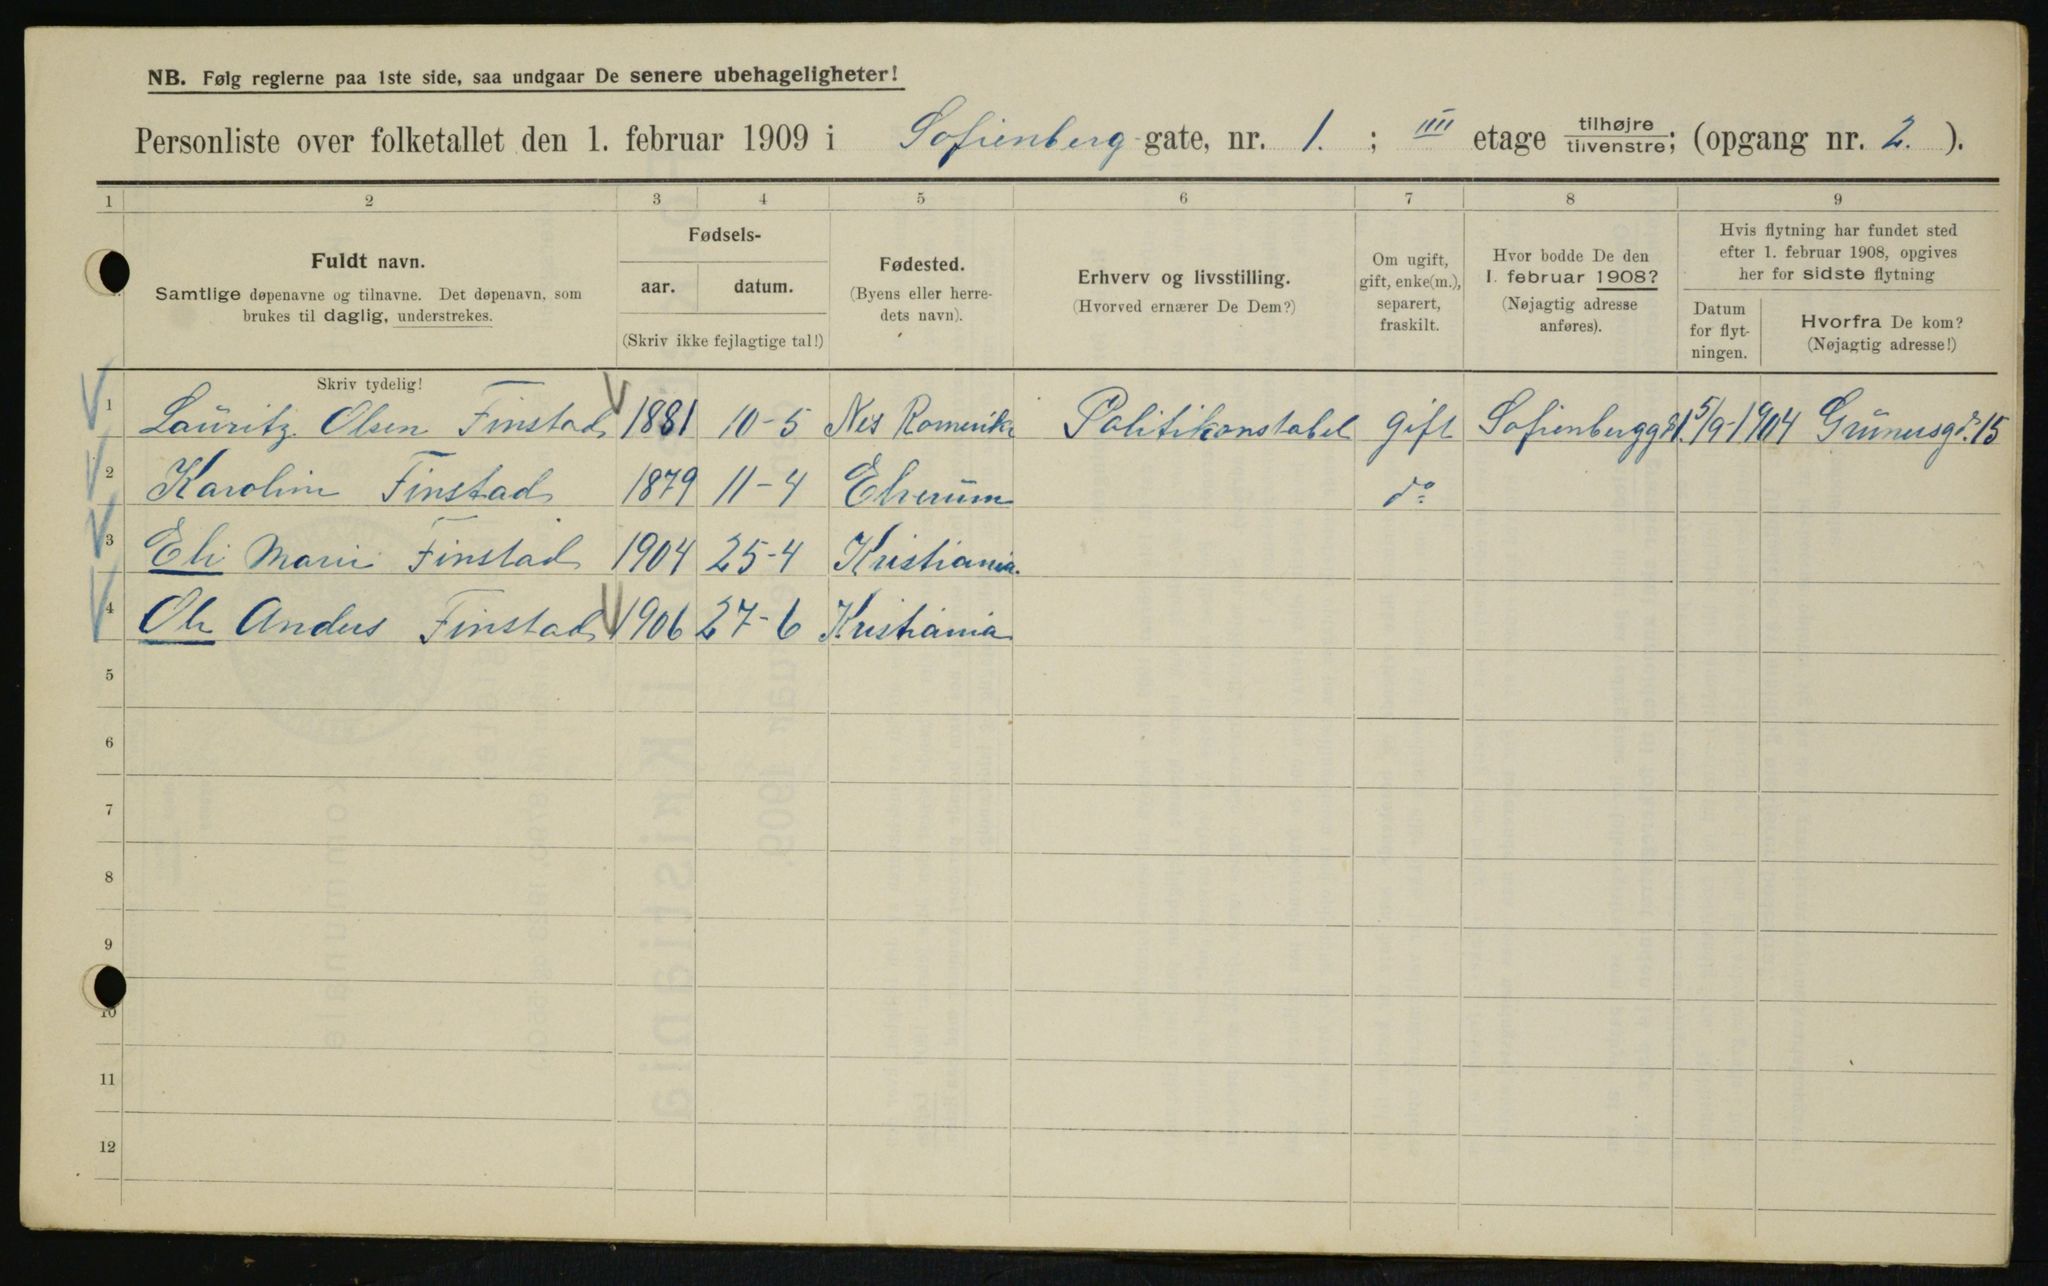 NB. Følg reglerne paa 1ste side, saa undgaar De senere ubehageligheter!
Personliste over folketallet den 1. februar 1909 i Sofienberg-gate, nr. 1. ; IIII etage tilhøjre tilvenstre; (opgang nr. 2. ).
1 2 3 4 5 6 7 8 9
Fuldt navn.
Samtlige døpenavne og tilnavne. Det døpenavn, som
brukes til daglig, understrekes.
Fødsels-
aar. datum.
(Skriv ikke fejlagtige tal!)
Fødested.
(Byens eller herre-
dets navn).
Erhverv og livsstilling.
(Hvorved ernærer De Dem?)
Om ugift,
gift, enke(m.),
separert,
fraskilt.
Hvor bodde De den
1. februar 1908?
(Nøjagtig adresse
anføres).
Hvis flytning har fundet sted
efter 1. februar 1908, opgives
her for sidste flytning
Datum
for flyt-
ningen.
Hvorfra De kom?
(Nøjagtig adresse!)
Skriv tydelig!
1 Lauritz Olsen Finstad 1881 10-5 Nes Romerike Politikonstabel gift Sofienberggd 1. 5/9-1904 Grünersgd. 15
2 Karoline Finstad 1879 11-4 Elverum do
3 Eli Marie Finstad 1904 25-4 Kristiania
4 Ole Anders Finstad 1906 27-6 Kristiania
5
6
7
8
9
10
11
12